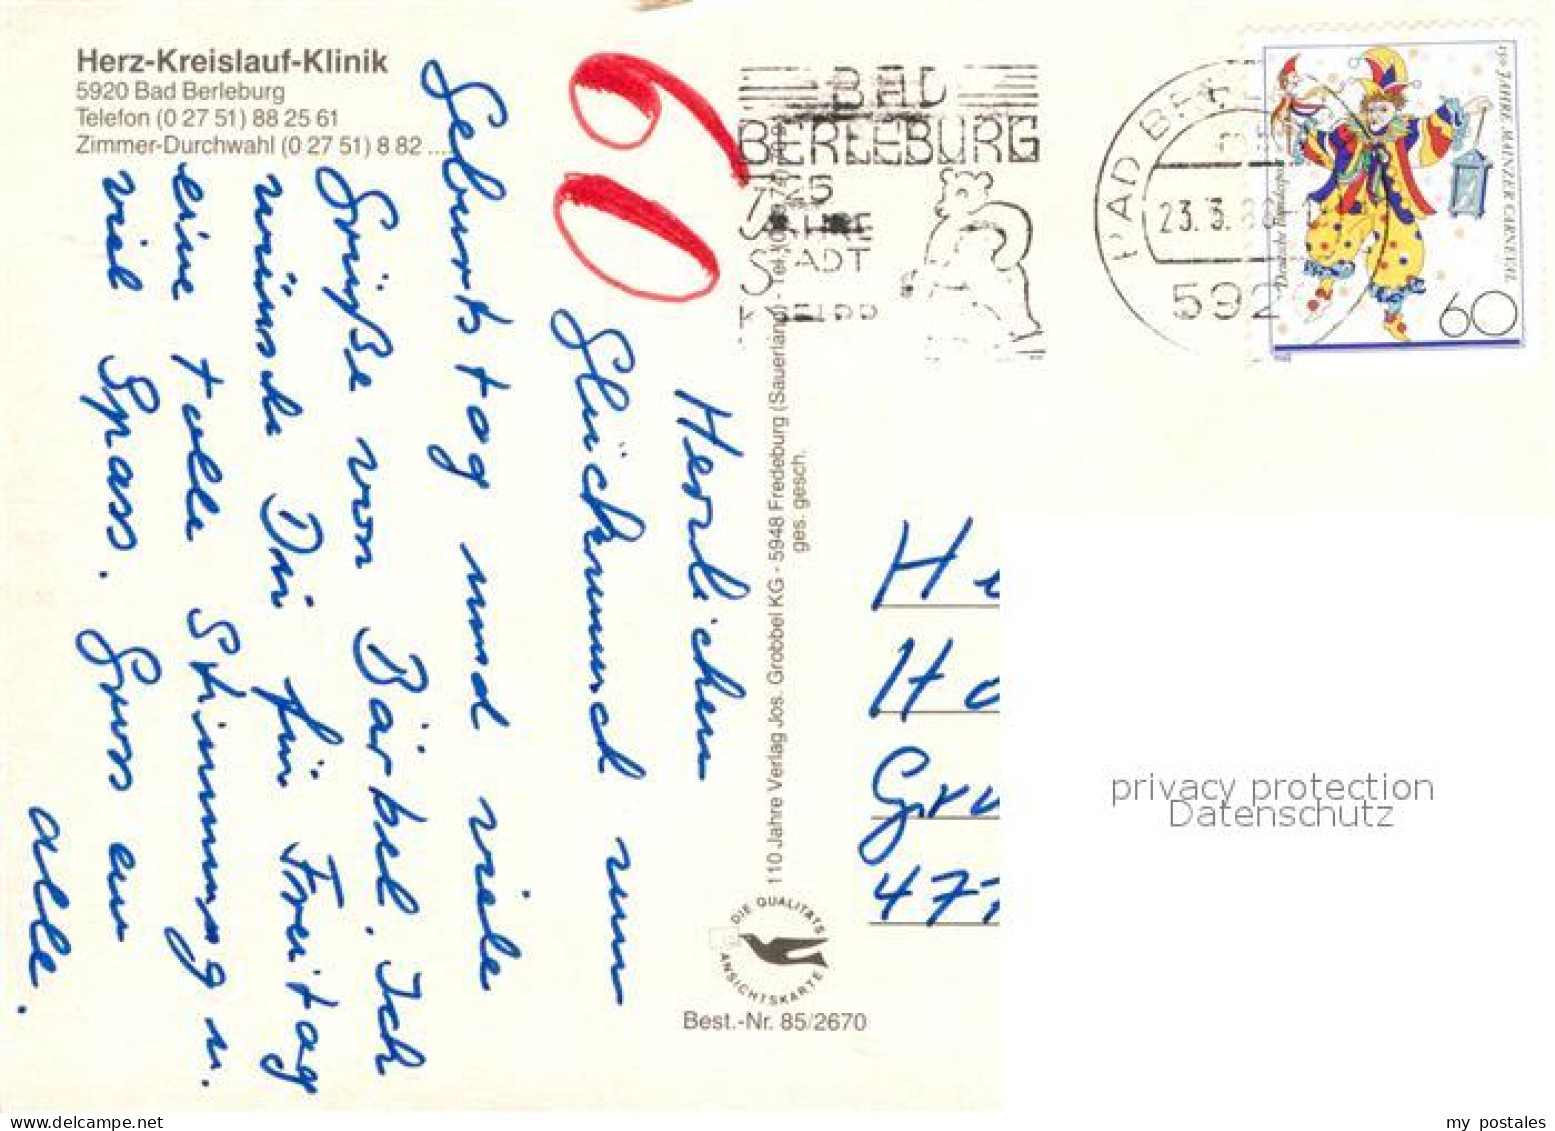 Herz-Kreislauf-Klinik
5920 Bad Berleburg
Telefon (0 27 51) 88 25 61
Zimmer-Durchwahl (0 27 51) 8 82 ....
60
Herzlichen
Glückwunsch zum
Geburtstag und viele
Grüße von Bärbel. Ich
wünsche Dir für Freitag
eine tolle Stimmung u.
viel Spass. Gruss an
alle.
110 Jahre Verlag Jos. Grobbel KG - 5948 Fredeburg (Sauerland) - Tel.
ges. gesch.
DIE QUALITÄTS
ANSICHTSKARTE
Best.-Nr. 85/2670
BAD
BERLEBURG
JAHRE
STADT
BAD BER
23.3.88
592
150 JAHRE MAINZER CARNEVAL
Deutsche Bundespost
60
H
Ho
Gru
477
privacy protection
Datenschutz
my postales